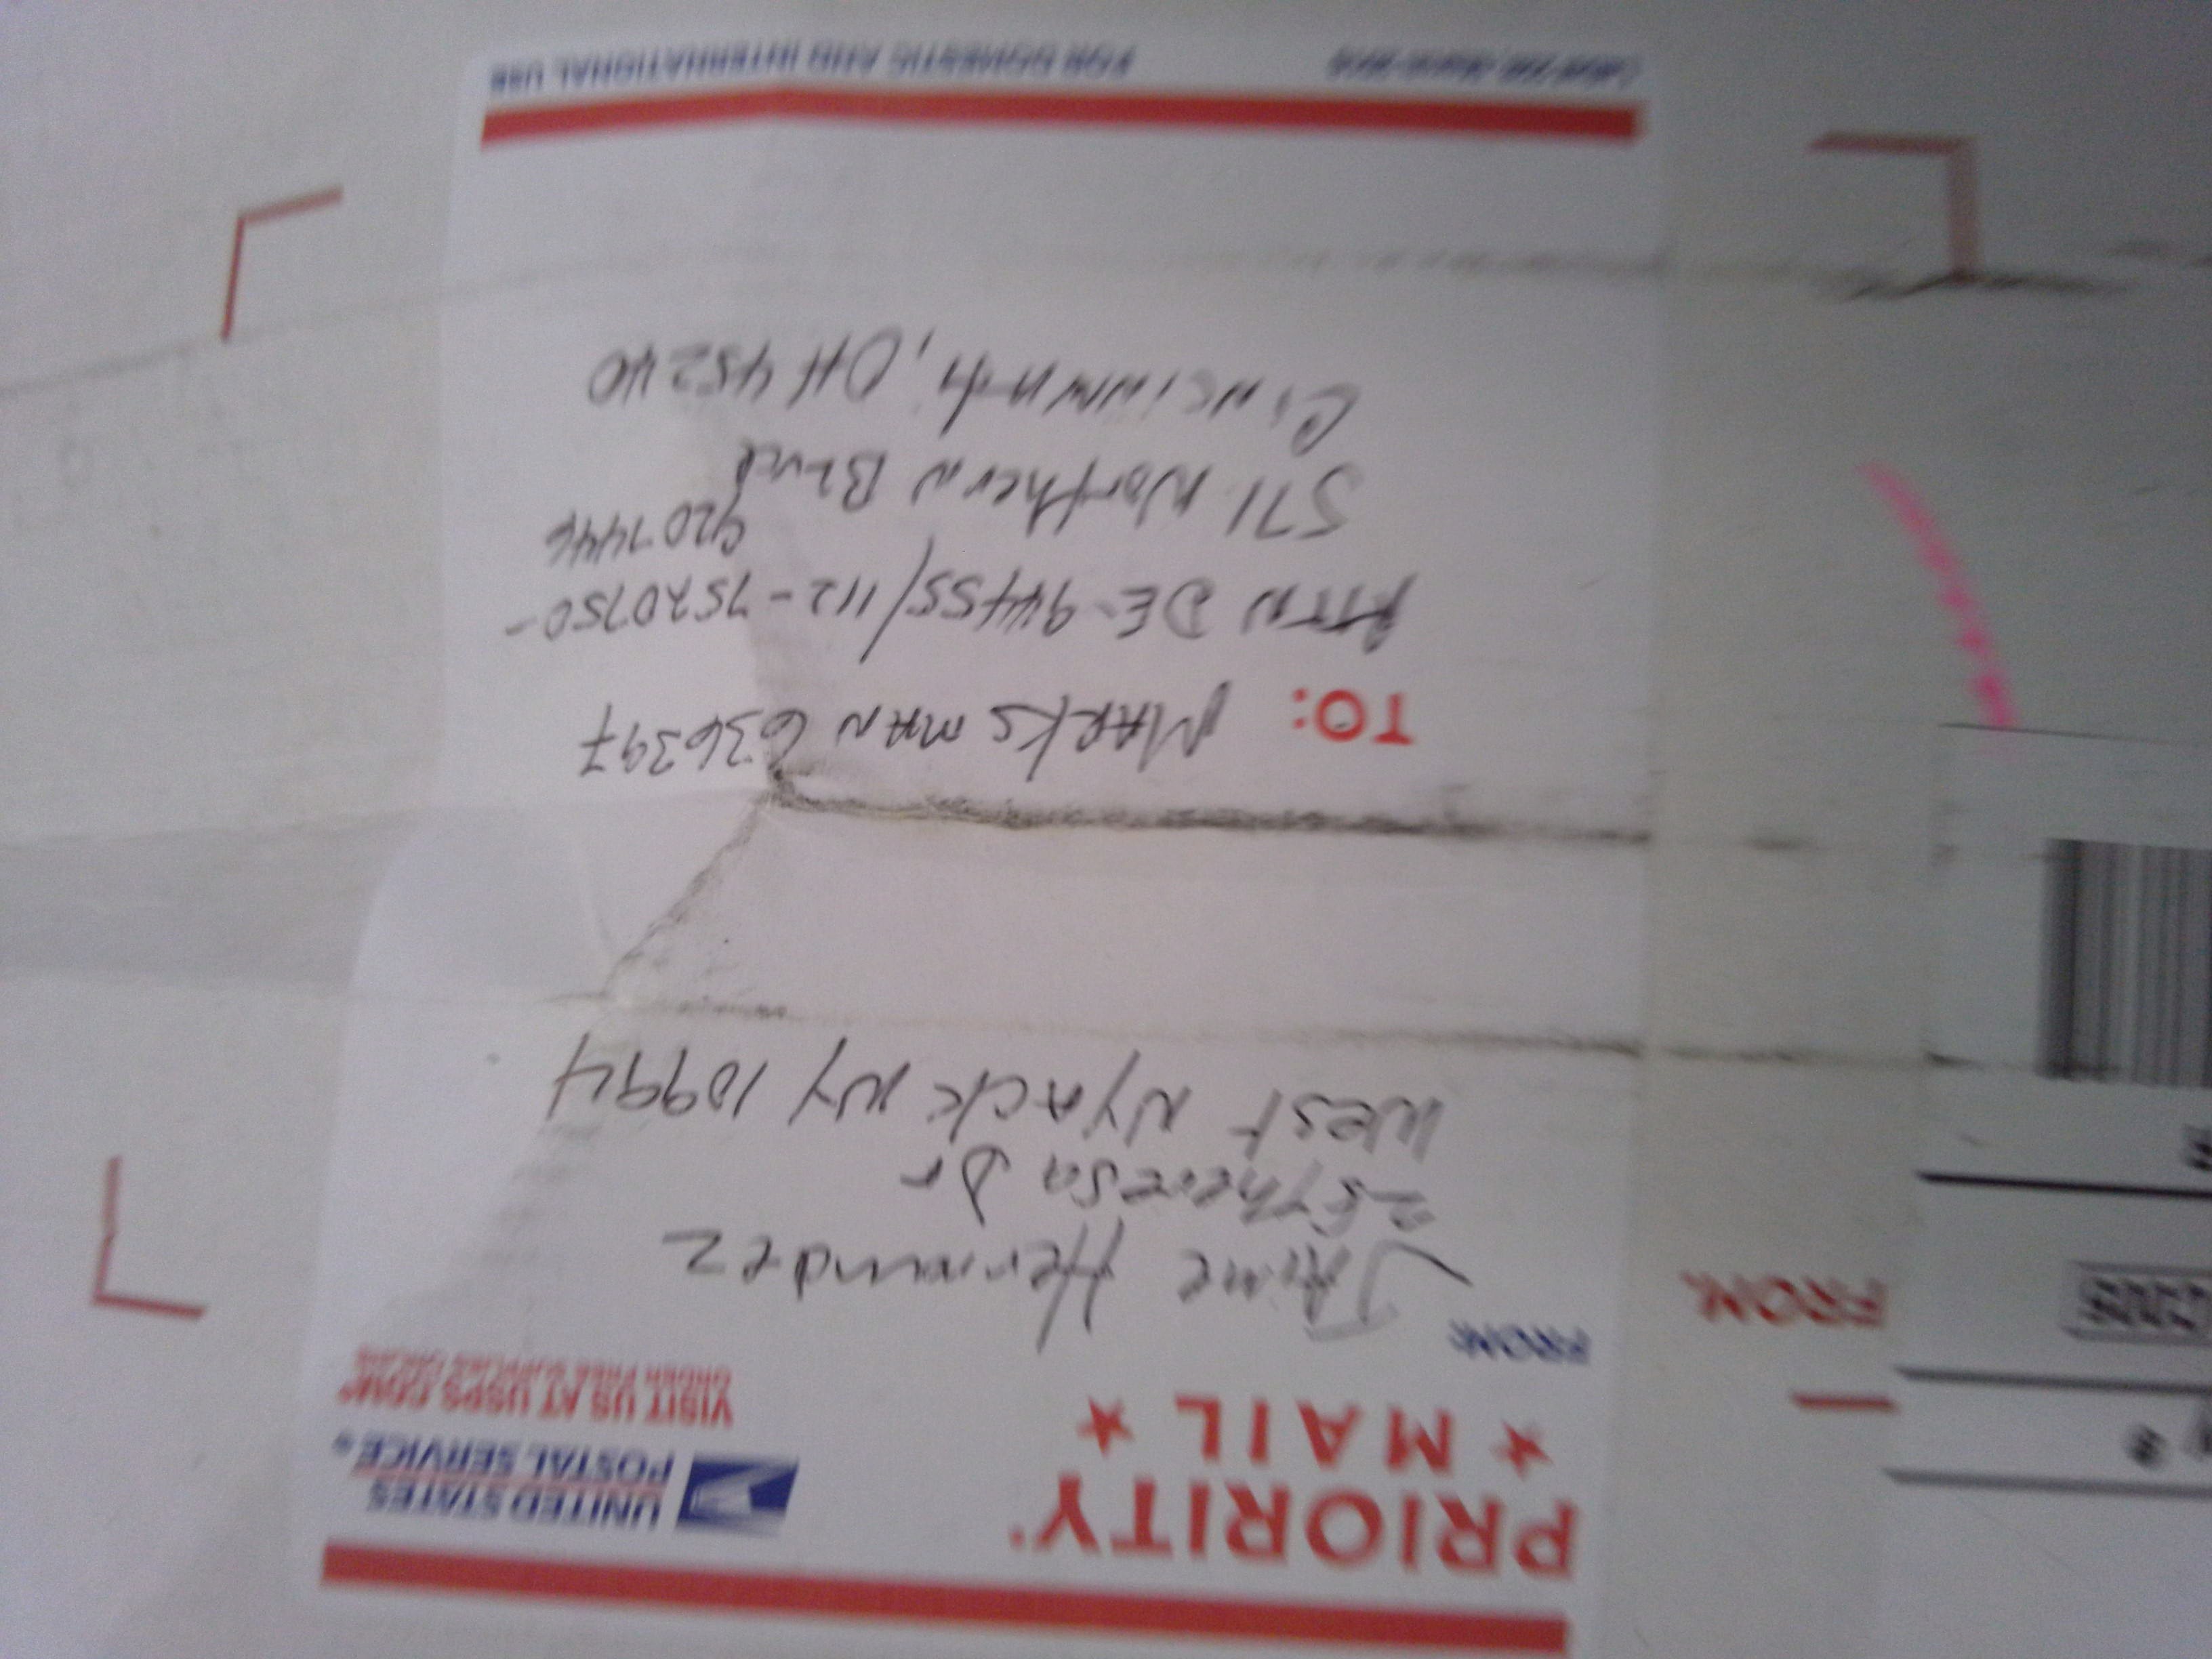 PRIORITY
★ MAIL ★
UNITED STATES
POSTAL SERVICE®
VISIT US AT USPS.COM®
ORDER FREE SUPPLIES ONLINE
FROM:
Jaime Hernandez
Theresa Dr
West Nyack NY 10994
TO: MARKSMAN 636397
ATTN DE-94455/112-7520750-
9207446
571 Northern Blvd
Cincinnati, OH 45240
FOR DOMESTIC AND INTERNATIONAL USE
FROM: